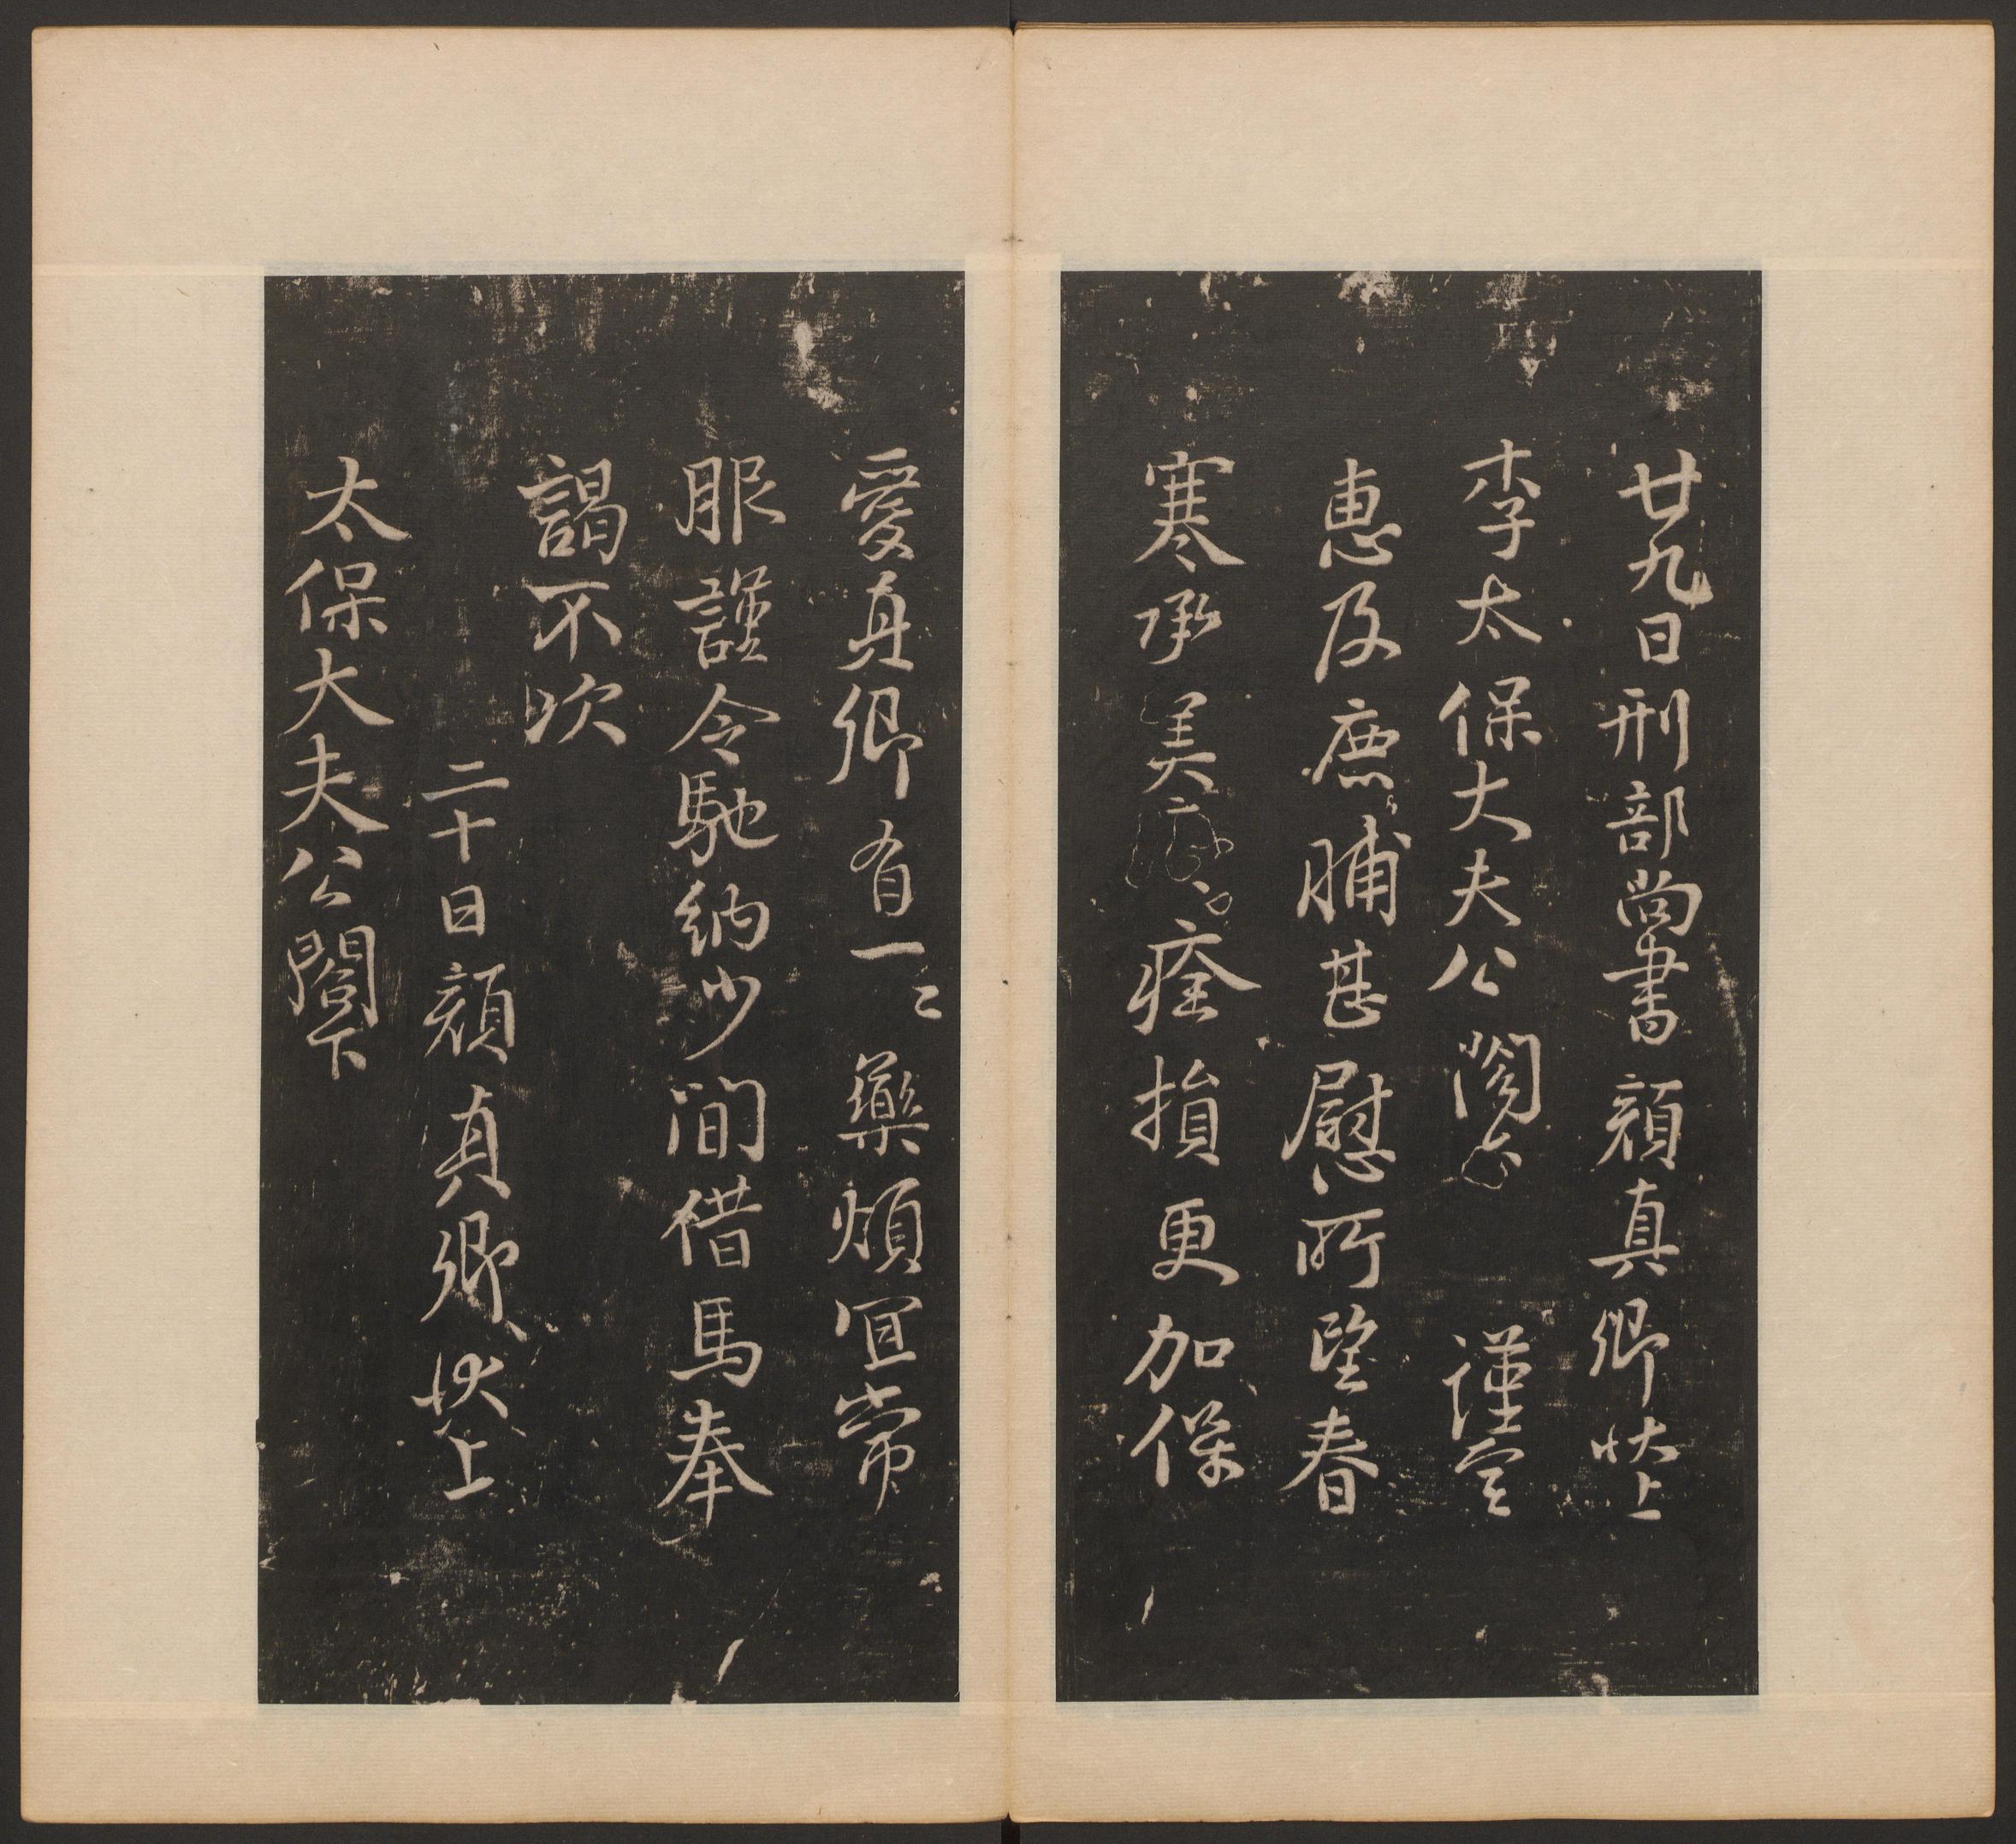 廿九日刑部尚書顏真卿狀上
李太保大夫公閣 謹空
惠及鹿脯甚慰所望春
寒承美疹痊損更加保
愛真卿有一二藥煩宜常
服謹令馳納少間借馬奉
謁不次
二十日顏真卿狀上
太保大夫公閤下